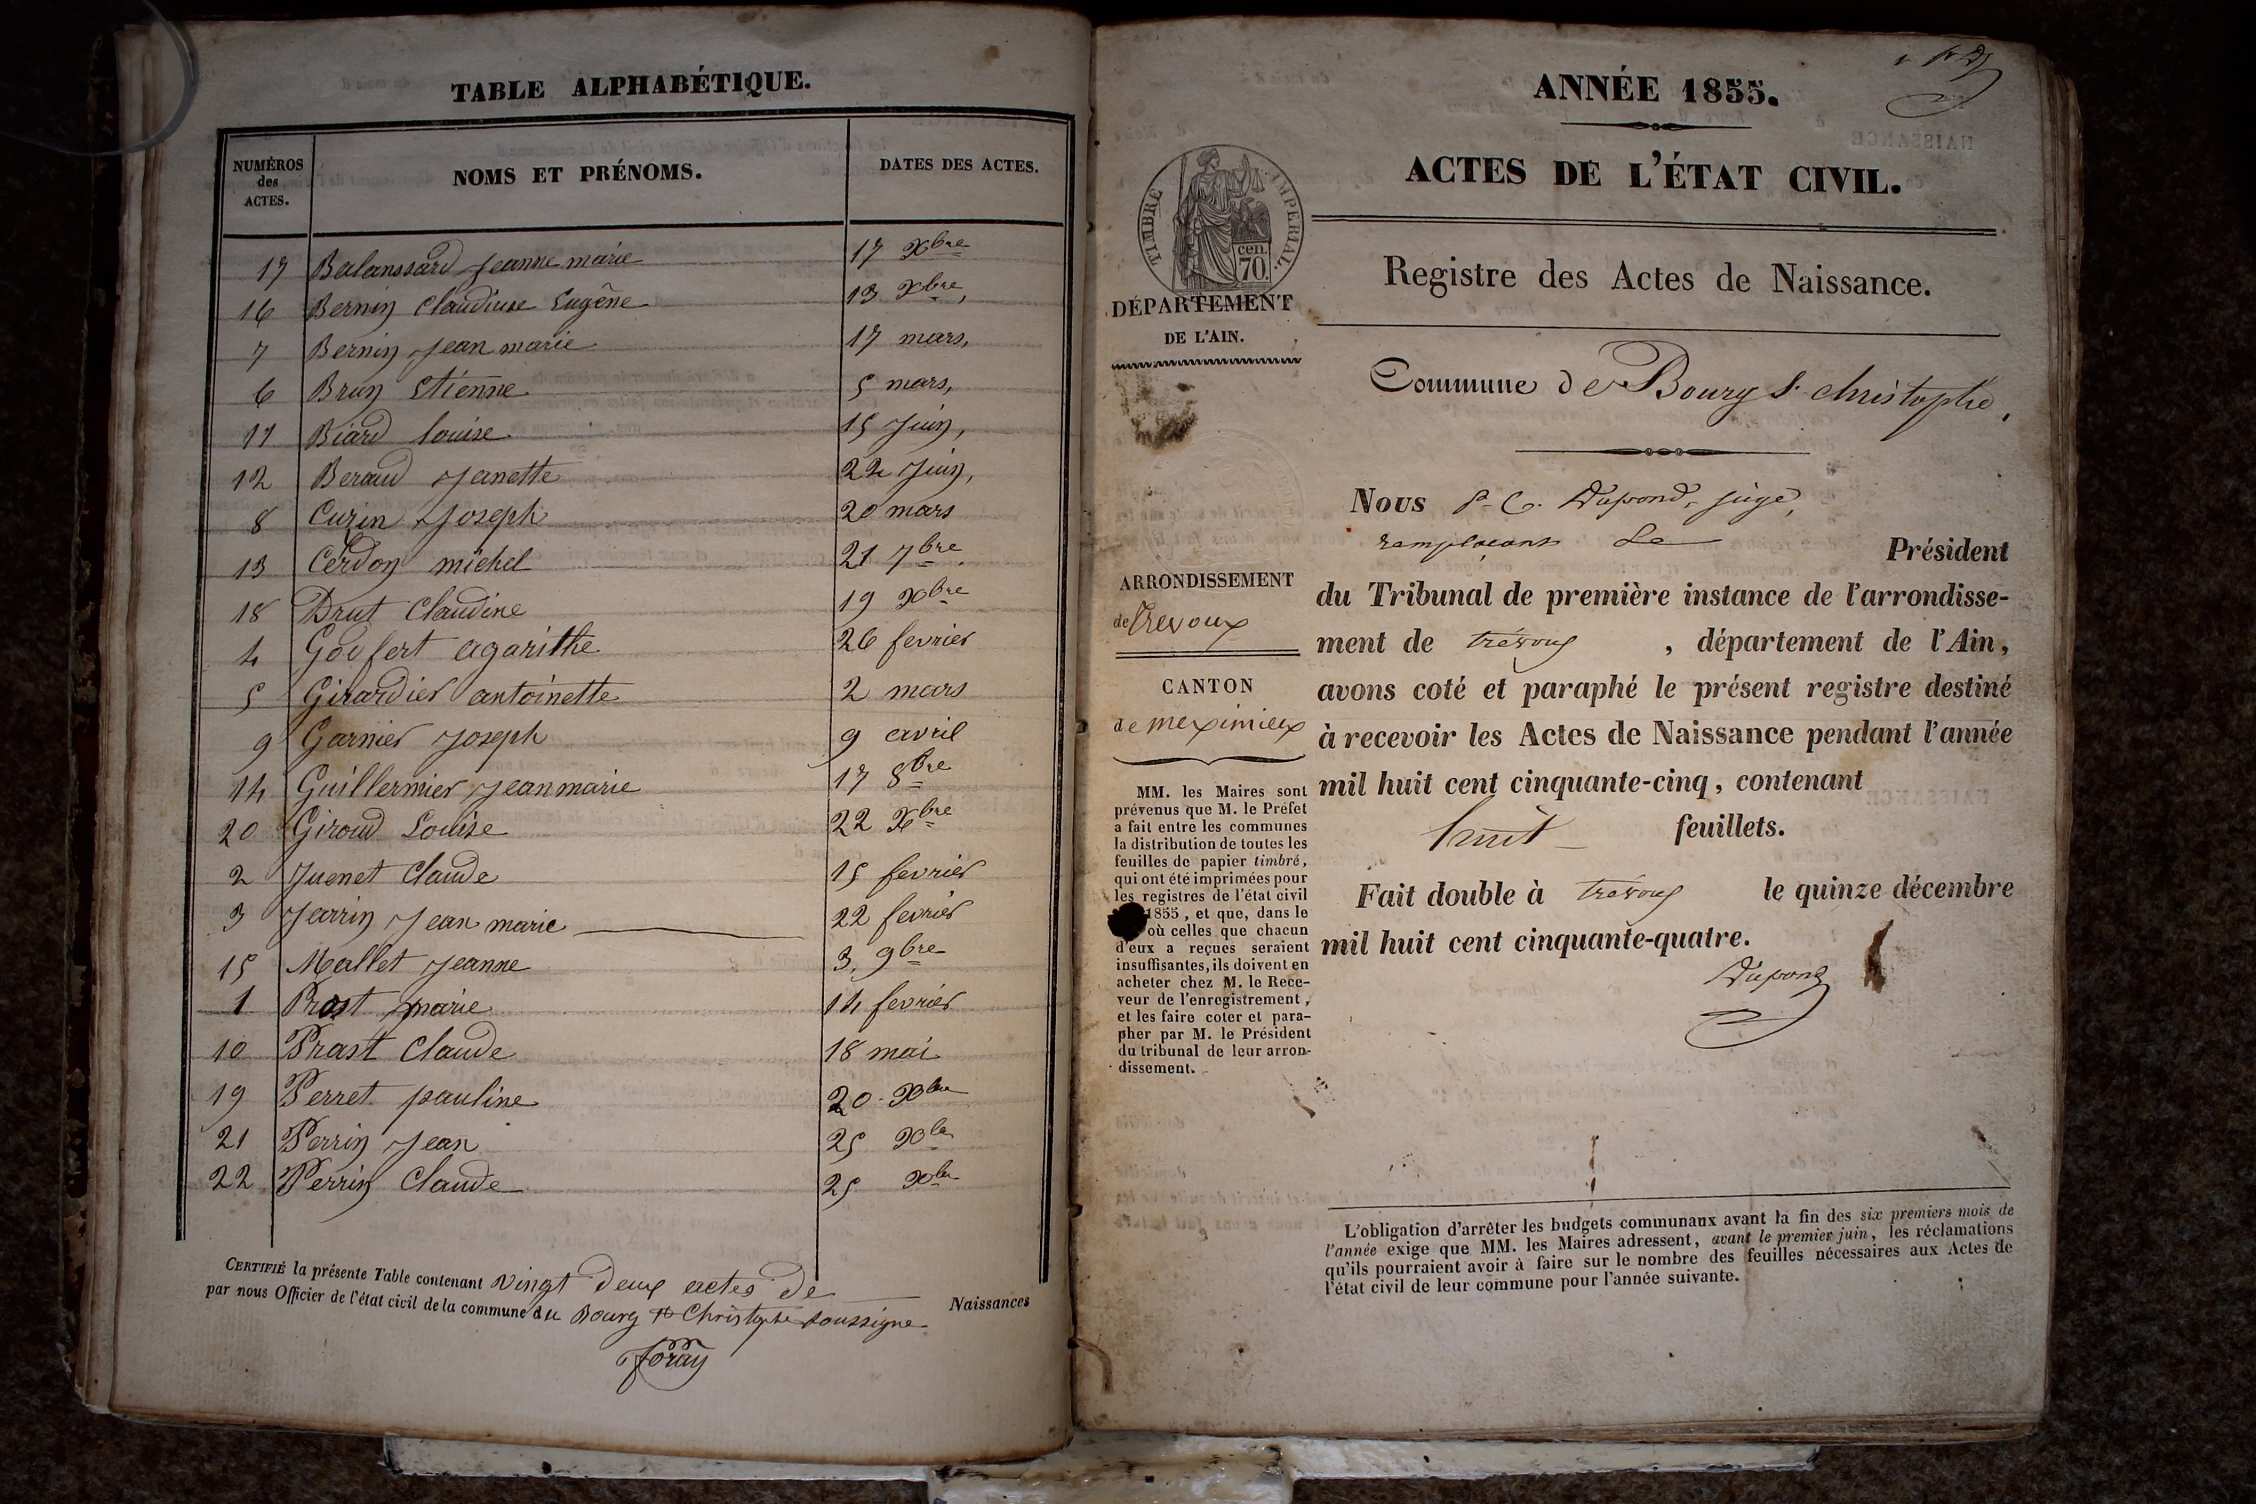 TABLE ALPHABÉTIQUE.
NUMÉROS des ACTES. NOMS ET PRÉNOMS. DATES DES ACTES.
17 Balanssard Jeanne marie 17 Xbre
16 Bernin Claudine Eugêne 13 Xbre,
7 Bernin Jean marie 17 mars,
6 Brun Etienne 5 mars,
11 Biard louise 15 Juin,
12 Beraud Janette 22 Juin,
8 Curin Joseph 20 mars
13 Cerdon michel 21 7bre.
18 Drut Claudine 19 Xbre
4 Goifert agarithe 26 fevrier
5 Girardier antoinette 2 mars
9 Garnier Joseph 9 avril
14 Guillermier Jean marie 17 8bre
20 Giroud Louise 22 Xbre
2 Juenet Claude 15 fevrier
3 Jarrin Jean marie 22 fevrier
15 Mallet Jeanne 3, 9bre
1 Prost marie 14 fevrier
10 Prast Claude 18 mai
19 Perret pauline 20 Xbre
21 Perrin Jean 25 Xbre
22 Perrin Claude 25 Xbre
CERTIFIÉ la présente Table contenant vingt deux actes de Naissances
par nous Officier de l'état civil de la commune du Bourg St Christophe soussigne
foray
ANNÉE 1855.
ACTES DE L'ÉTAT CIVIL.
TIMBRE IMPERIAL.
cen. 70.
DÉPARTEMENT
DE L'AIN.
Registre des Actes de Naissance.
Commune de Bourg St christophe,
Nous P. C. Dupond, juge,
remplaçant Le Président
du Tribunal de première instance de l'arrondisse-
ment de trévoux, département de l'Ain,
avons coté et paraphé le présent registre destiné
à recevoir les Actes de Naissance pendant l'année
mil huit cent cinquante-cinq, contenant
huit feuillets.
Fait double à trévoux le quinze décembre
mil huit cent cinquante-quatre.
Dupond
ARRONDISSEMENT
de trevoux
CANTON
de meximieux
MM. les Maires sont
prévenus que M. le Préfet
a fait entre les communes
la distribution de toutes les
feuilles de papier timbré,
qui ont été imprimées pour
les registres de l'état civil
1855, et que, dans le
où celles que chacun
d'eux a reçues seraient
insuffisantes, ils doivent en
acheter chez M. le Rece-
veur de l'enregistrement,
et les faire coter et para-
pher par M. le Président
du tribunal de leur arron-
dissement.
L'obligation d'arrêter les budgets communaux avant la fin des six premiers mois de
l'année exige que MM. les Maires adressent, avant le premier juin, les réclamations
qu'ils pourraient avoir à faire sur le nombre des feuilles nécessaires aux Actes de
l'état civil de leur commune pour l'année suivante.